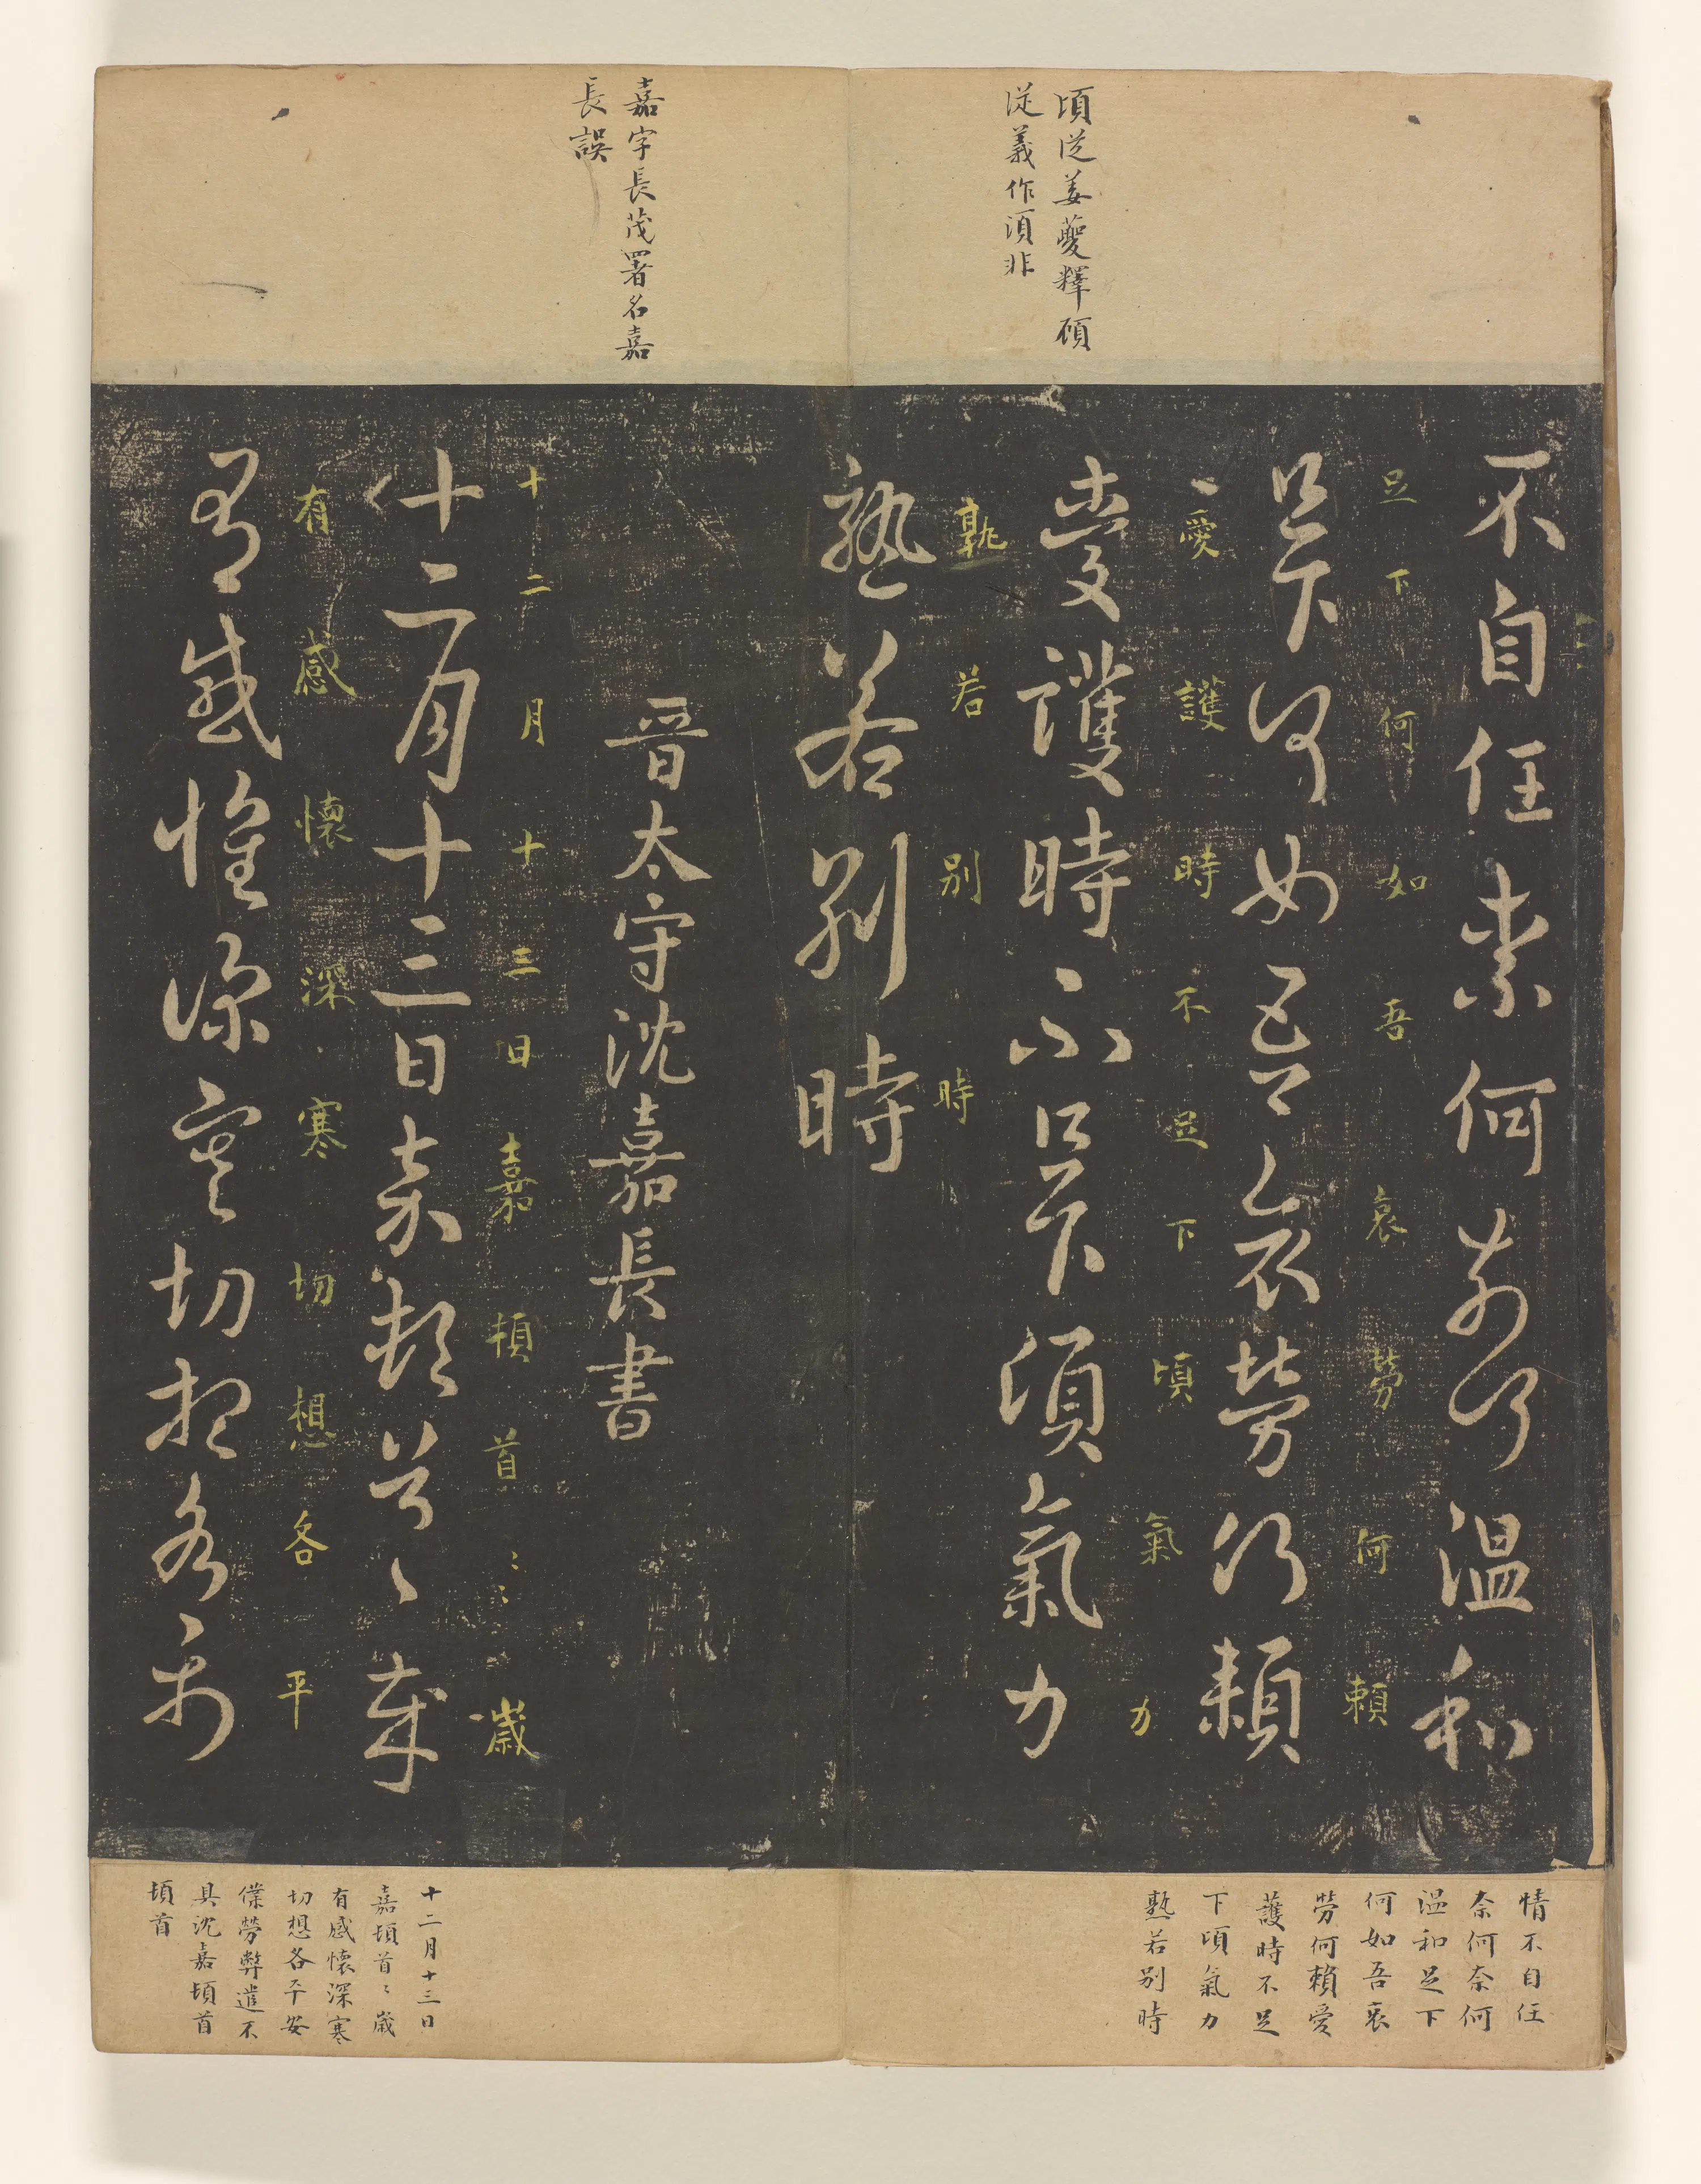 頃從姜夔釋碩
從義作須非
不自任柰何柰何溫和
足下何如吾哀勞何賴
足下何如吾哀勞何賴
愛護時不足下頃氣力
愛護時不足下頃氣力
孰若別時
熟若別時
情不自任
奈何奈何
溫和足下
何如吾哀
勞何賴愛
護時不足
下頃氣力
熟若別時
嘉字長茂署名嘉
長誤
晉太守沈嘉長書
十二月十三日嘉頓首〻〻歲
十二月十三日嘉頓首〻歲
有感懷深寒切想各平
有感懷深寒切想各平
十二月十三日
嘉頓首〻歲
有感懷深寒
切想各平安
僕勞弊遣不
具沈嘉頓首
頓首